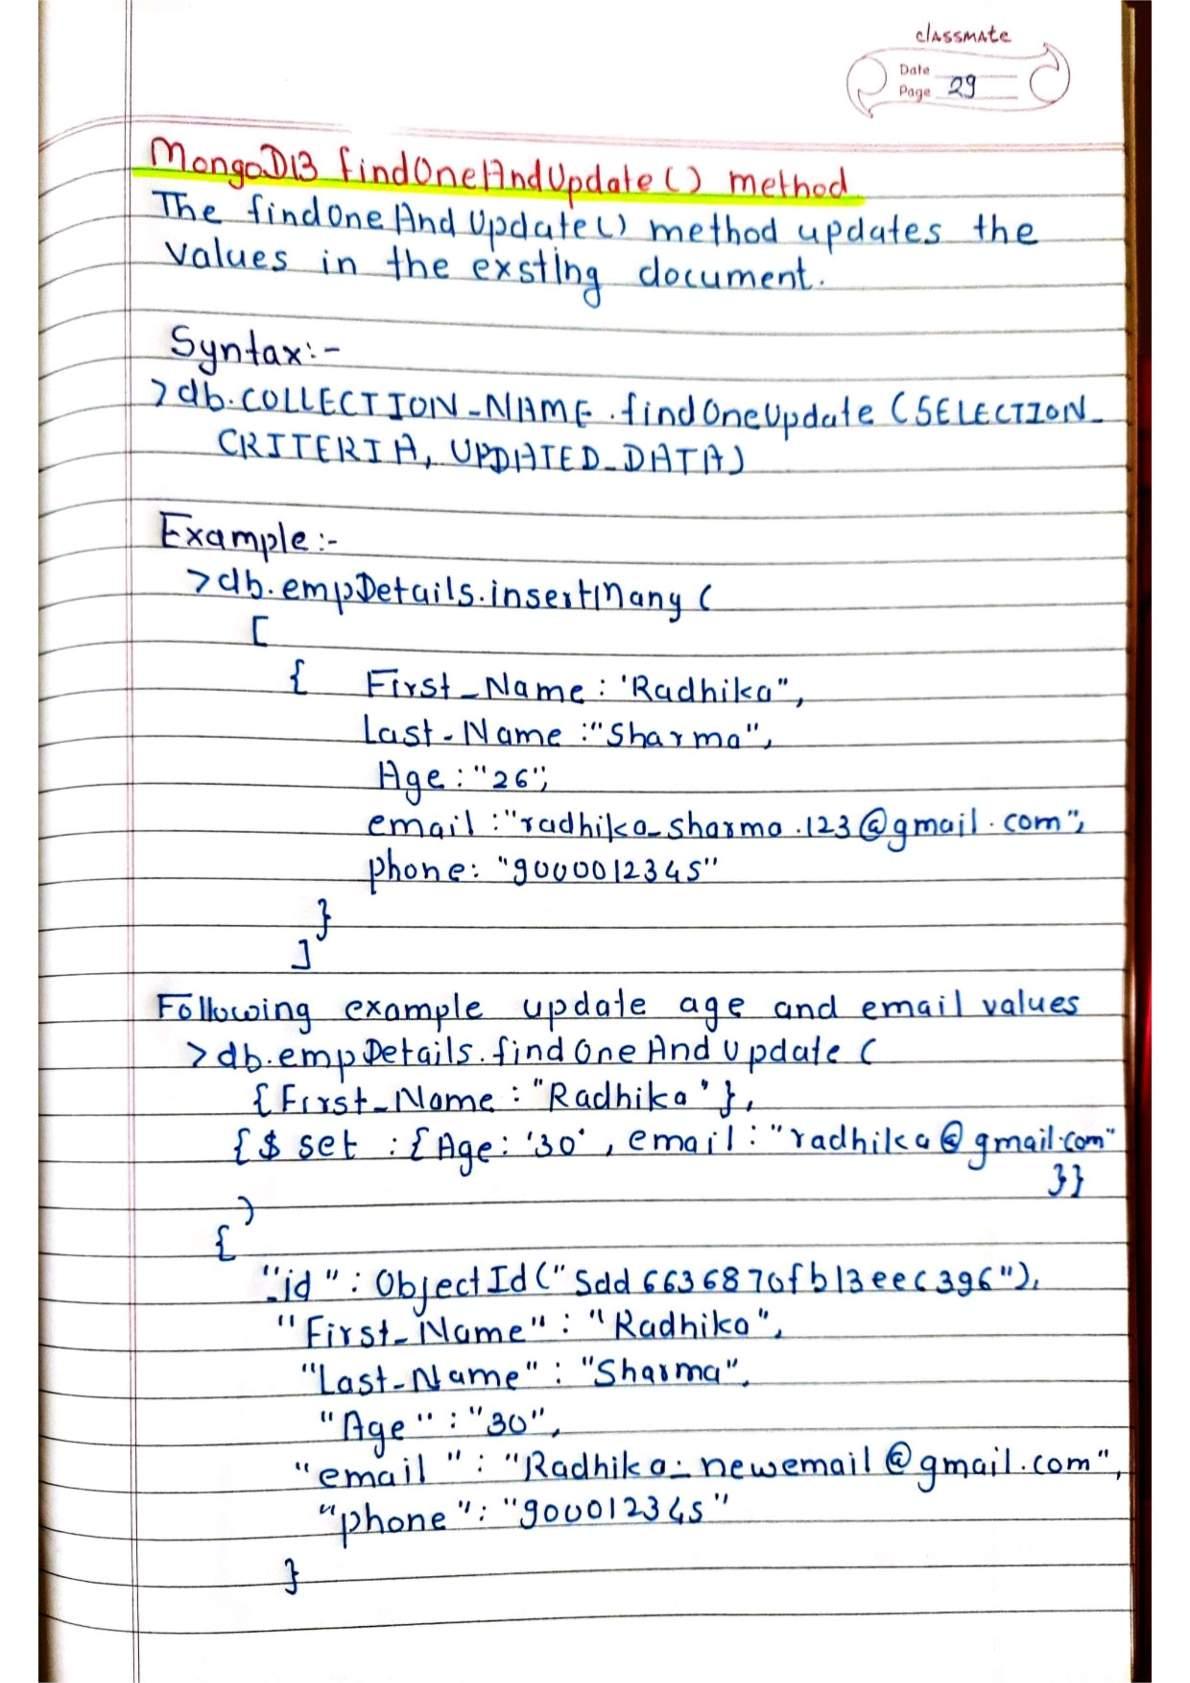 classmate
Date
Page 29
MongoDB findOneAndUpdate() method
The findOneAndUpdate() method updates the
values in the exsting document.
Syntax:-
>db.COLLECTION_NAME.findOneUpdate (SELECTION_
CRITERIA, UPDATED_DATA)
Example:-
>db.empDetails.insertMany (
[
{ First_Name : 'Radhika",
Last_Name :"Sharma",
Age : "26",
email :"radhika_sharma.123@gmail.com",
phone: "9000012345"
}
]
Following example update age and email values
>db.empDetails.findOneAndUpdate (
{First_Name : "Radhika'},
{$ set : {Age: '30', email : "radhika@gmail.com"
}}
)
{
"_id" : ObjectId("5dd6636870fb13eec396"),
"First_Name" : "Radhika",
"Last_Name" : "Sharma",
"Age" : "30",
"email" : "Radhika_newemail@gmail.com",
"phone" : "900012345"
}